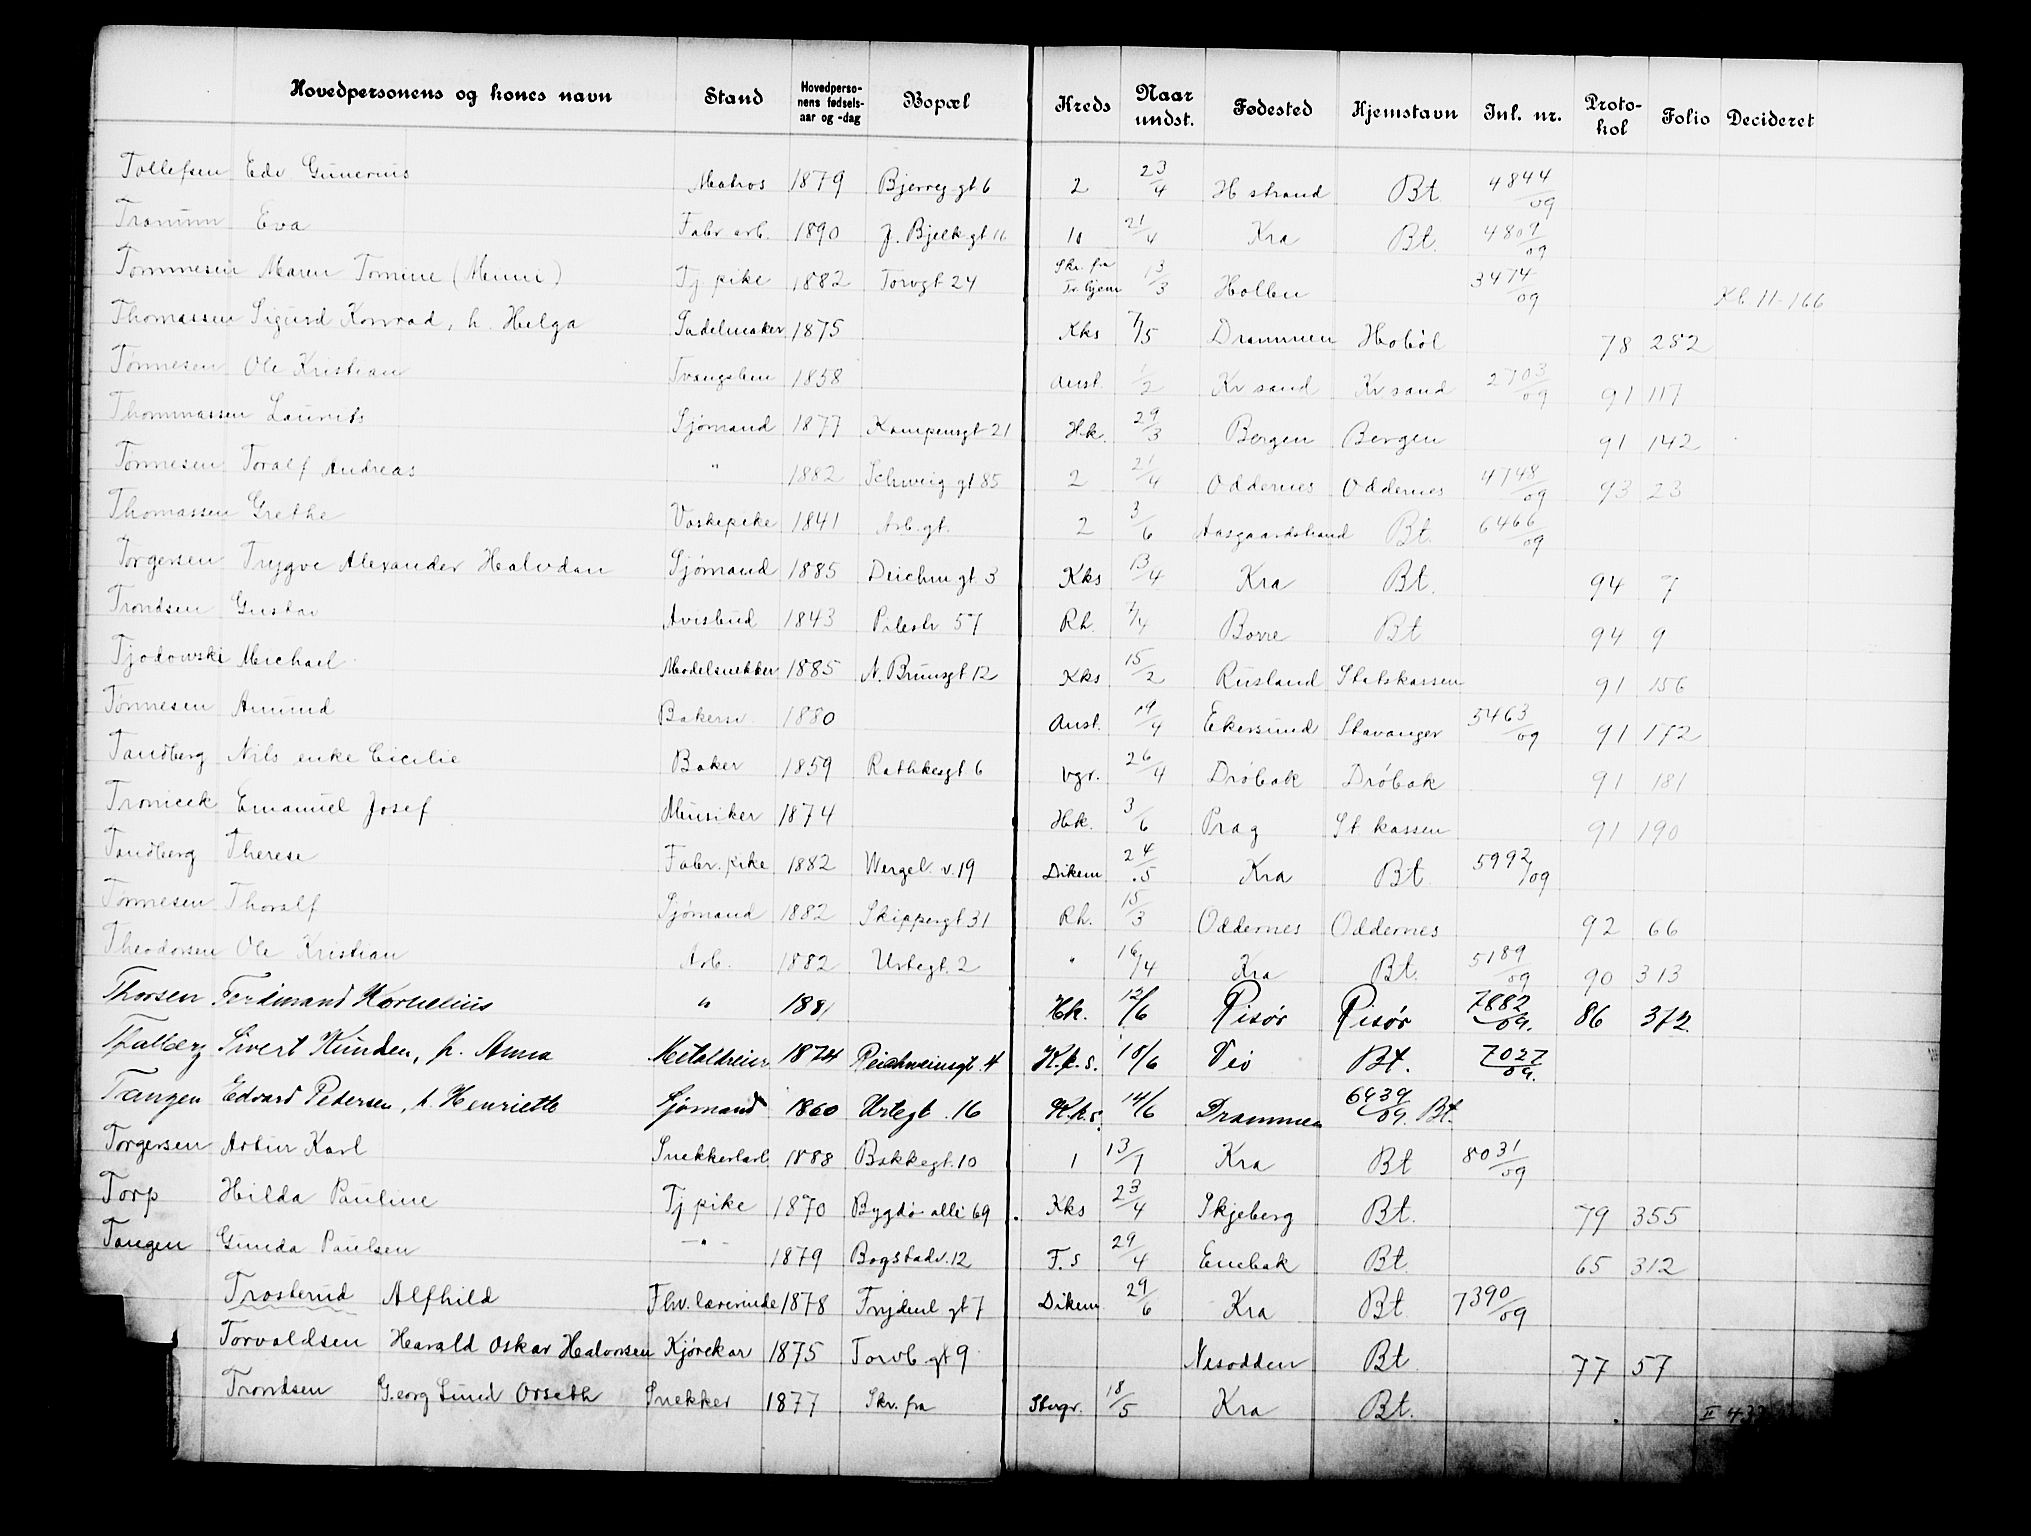 Hovedpersonens og kones navn | Stand | Hovedpersonens fødselsaar og -dag | Bopæl | Kreds | Naar undst. | Fødested | Hjemstavn | Inl. nr. | Protokol | Folio | Decideret
Tollefsen Edv Gunerius | Matros | 1879 | Bjerreg gt 6 | 2 | 23/4 | H strand | Bt | 4844/09
Tranum Eva | Fabr arb. | 1890 | J. Bjelk gt 11 | 10 | 21/4 | Kra | Bt. | 4809/09
Tommesen Maren Tomine (Minni) | Tj pike | 1882 | Torvgt 24 | Skr. fra Tr. hjem | 13/3 | Hollen | 3474/09 | Kl. 11-166
Thomassen Sigurd Konrad, h. Helga | Sadelmaker | 1875 | Kks | 7/5 | Drammen | Hobøl | 78 | 252
Tønnesen Ole Kristian | Tvangslem | 1858 | Anst. | 1/2 | Kr sand | Kr sand | 2703/09 | 91 | 117
Thommassen Laurits | Sjømand | 1877 | Kampensgt 21 | Hk. | 29/3 | Bergen | Bergen | 91 | 142
Tønnesen Toralf Andreas | " | 1882 | Schweig gt 85 | 2 | 21/4 | Oddernes | Oddernes | 4748/09 | 93 | 23
Thomassen Grethe | Vaskepike | 1841 | Arb. gt. | 2 | 3/6 | Aasgaardstrand | Bt. | 6466/09
Torgersen Trygve Alexander Halvdan | Sjømand | 1885 | Deichm gt 3 | Kks | 13/4 | Kra | Bt. | 94 | 7
Trondsen Gustav | Avisbud | 1843 | Pilestr 57 | Rh. | 1/4 | Borre | Bt | 94 | 9
Tjodowski Michael | Modelsnekker | 1885 | N. Brunsgt 12 | Kks | 15/2 | Rusland | Statskassen | 91 | 156
Tønnesen Amund | Bakersv. | 1880 | Anst. | 19/4 | Ekersund | Stavanger | 5463/09 | 91 | 172
Tandberg Nils enke Cicilie | Baker | 1859 | Rathkesgt 6 | Vgr. | 26/4 | Drøbak | Drøbak | 91 | 181
Tronicek Emanuel Josef | Musiker | 1874 | Hk. | 3/6 | Prag | St kassen | 91 | 190
Tandberg Therese | Fabr. pike | 1882 | Wergel. v. 19 | Dikem | 24/5 | Kra | Bt | 5992/09
Tønnesen Thoralf | Sjømand | 1882 | Skippergt 31 | Rh. | 15/3 | Oddernes | Oddernes | 92 | 66
Theodorsen Ole Kristian | Arb. | 1882 | Urtegt. 2 | " | 16/4 | Kra | Bt. | 5189/09 | 90 | 313
Thorsen Ferdinand Kornelius | " | 1881 | Hk. | 12/6 | Risør | Risør | 7882/09. | 86 | 372
Thalberg Sivert Kunden, h. Anna | Metaldreier | 1874 | Reichweinsgt. 4 | K.k.s. | 18/6 | Veö | Bt. | 7027/09.
Tangen Edvard Pedersen, h. Henriette | Sjømand | 1860 | Urtegt. 16 | K.k.s. | 14/6 | Drammen | 6939/09. Bt.
Torgersen Artur Karl | Snekkerlærl. | 1888 | Bakkegt. 10 | 1 | 13/7 | Kra | Bt | 8031/09
Torp Hilda Pauline | Tj pike | 1870 | Bygdø alle 69 | Kks | 23/4 | Skjeberg | Bt. | 79 | 355
Tangen Gunda Paulsen | — " — | 1879 | Bogstadv. 12 | F.s | 29/4 | Enebak | Bt | 65 | 312
Trosterud Alfhild | Fhv. lærerinde | 1878 | Frydenl gt 7 | Dikem. | 29/6 | Kra | Bt | 7390/09
Torvaldsen Harald Oskar Halvorsen | Kjørekar | 1875 | Torvb. gt 9 | Nesodden | Bt | 77 | 57
Trondsen Georg Lund Orseth | Snekker | 1877 | Skr. fra | Stvgr. | 18/5 | Kra | Bt. | II